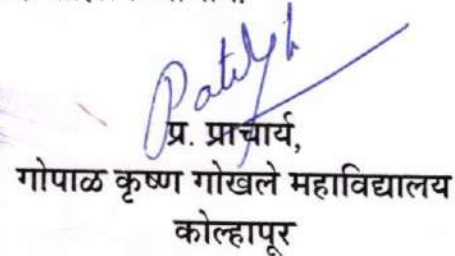 Patil
प्र. प्राचार्य,
गोपाळ कृष्ण गोखले महाविद्यालय
कोल्हापूर